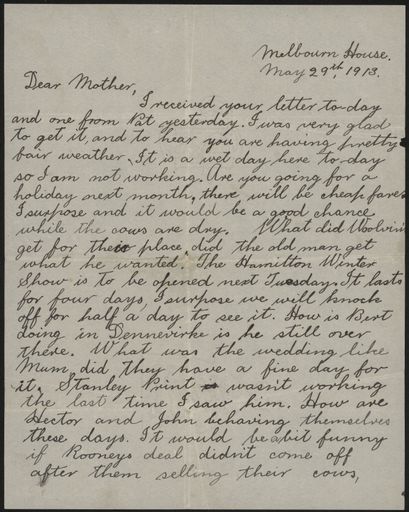 Melbourn House.
May 29th, 1913.
Dear Mother,
I received your letter to-day
and one from Pat yesterday. I was very glad
to get it, and to hear you are having pretty
fair weather. It is a wet day here to-day
so I am not working. Are you going for a
holiday next month, there will be cheap fares
I surpose and it would be a good chance
while the cows are dry. What did Woolvin
get for their place, did the old man get
what he wanted. The Hamilton Winter
Show is to be opened next Tuesday. It lasts
for four days, I surpose we will knock
off for half a day to see it. How is Bert
doing in Dennevirke is he still over
there. What was the wedding like
Mum, did they have a fine day for
it. Stanley Print wasn't working
the last time I saw him. How are
Hector and John behaving themselves
these days. It would be abit funny
if Rooneys deal didn't come off
after them selling their cows,